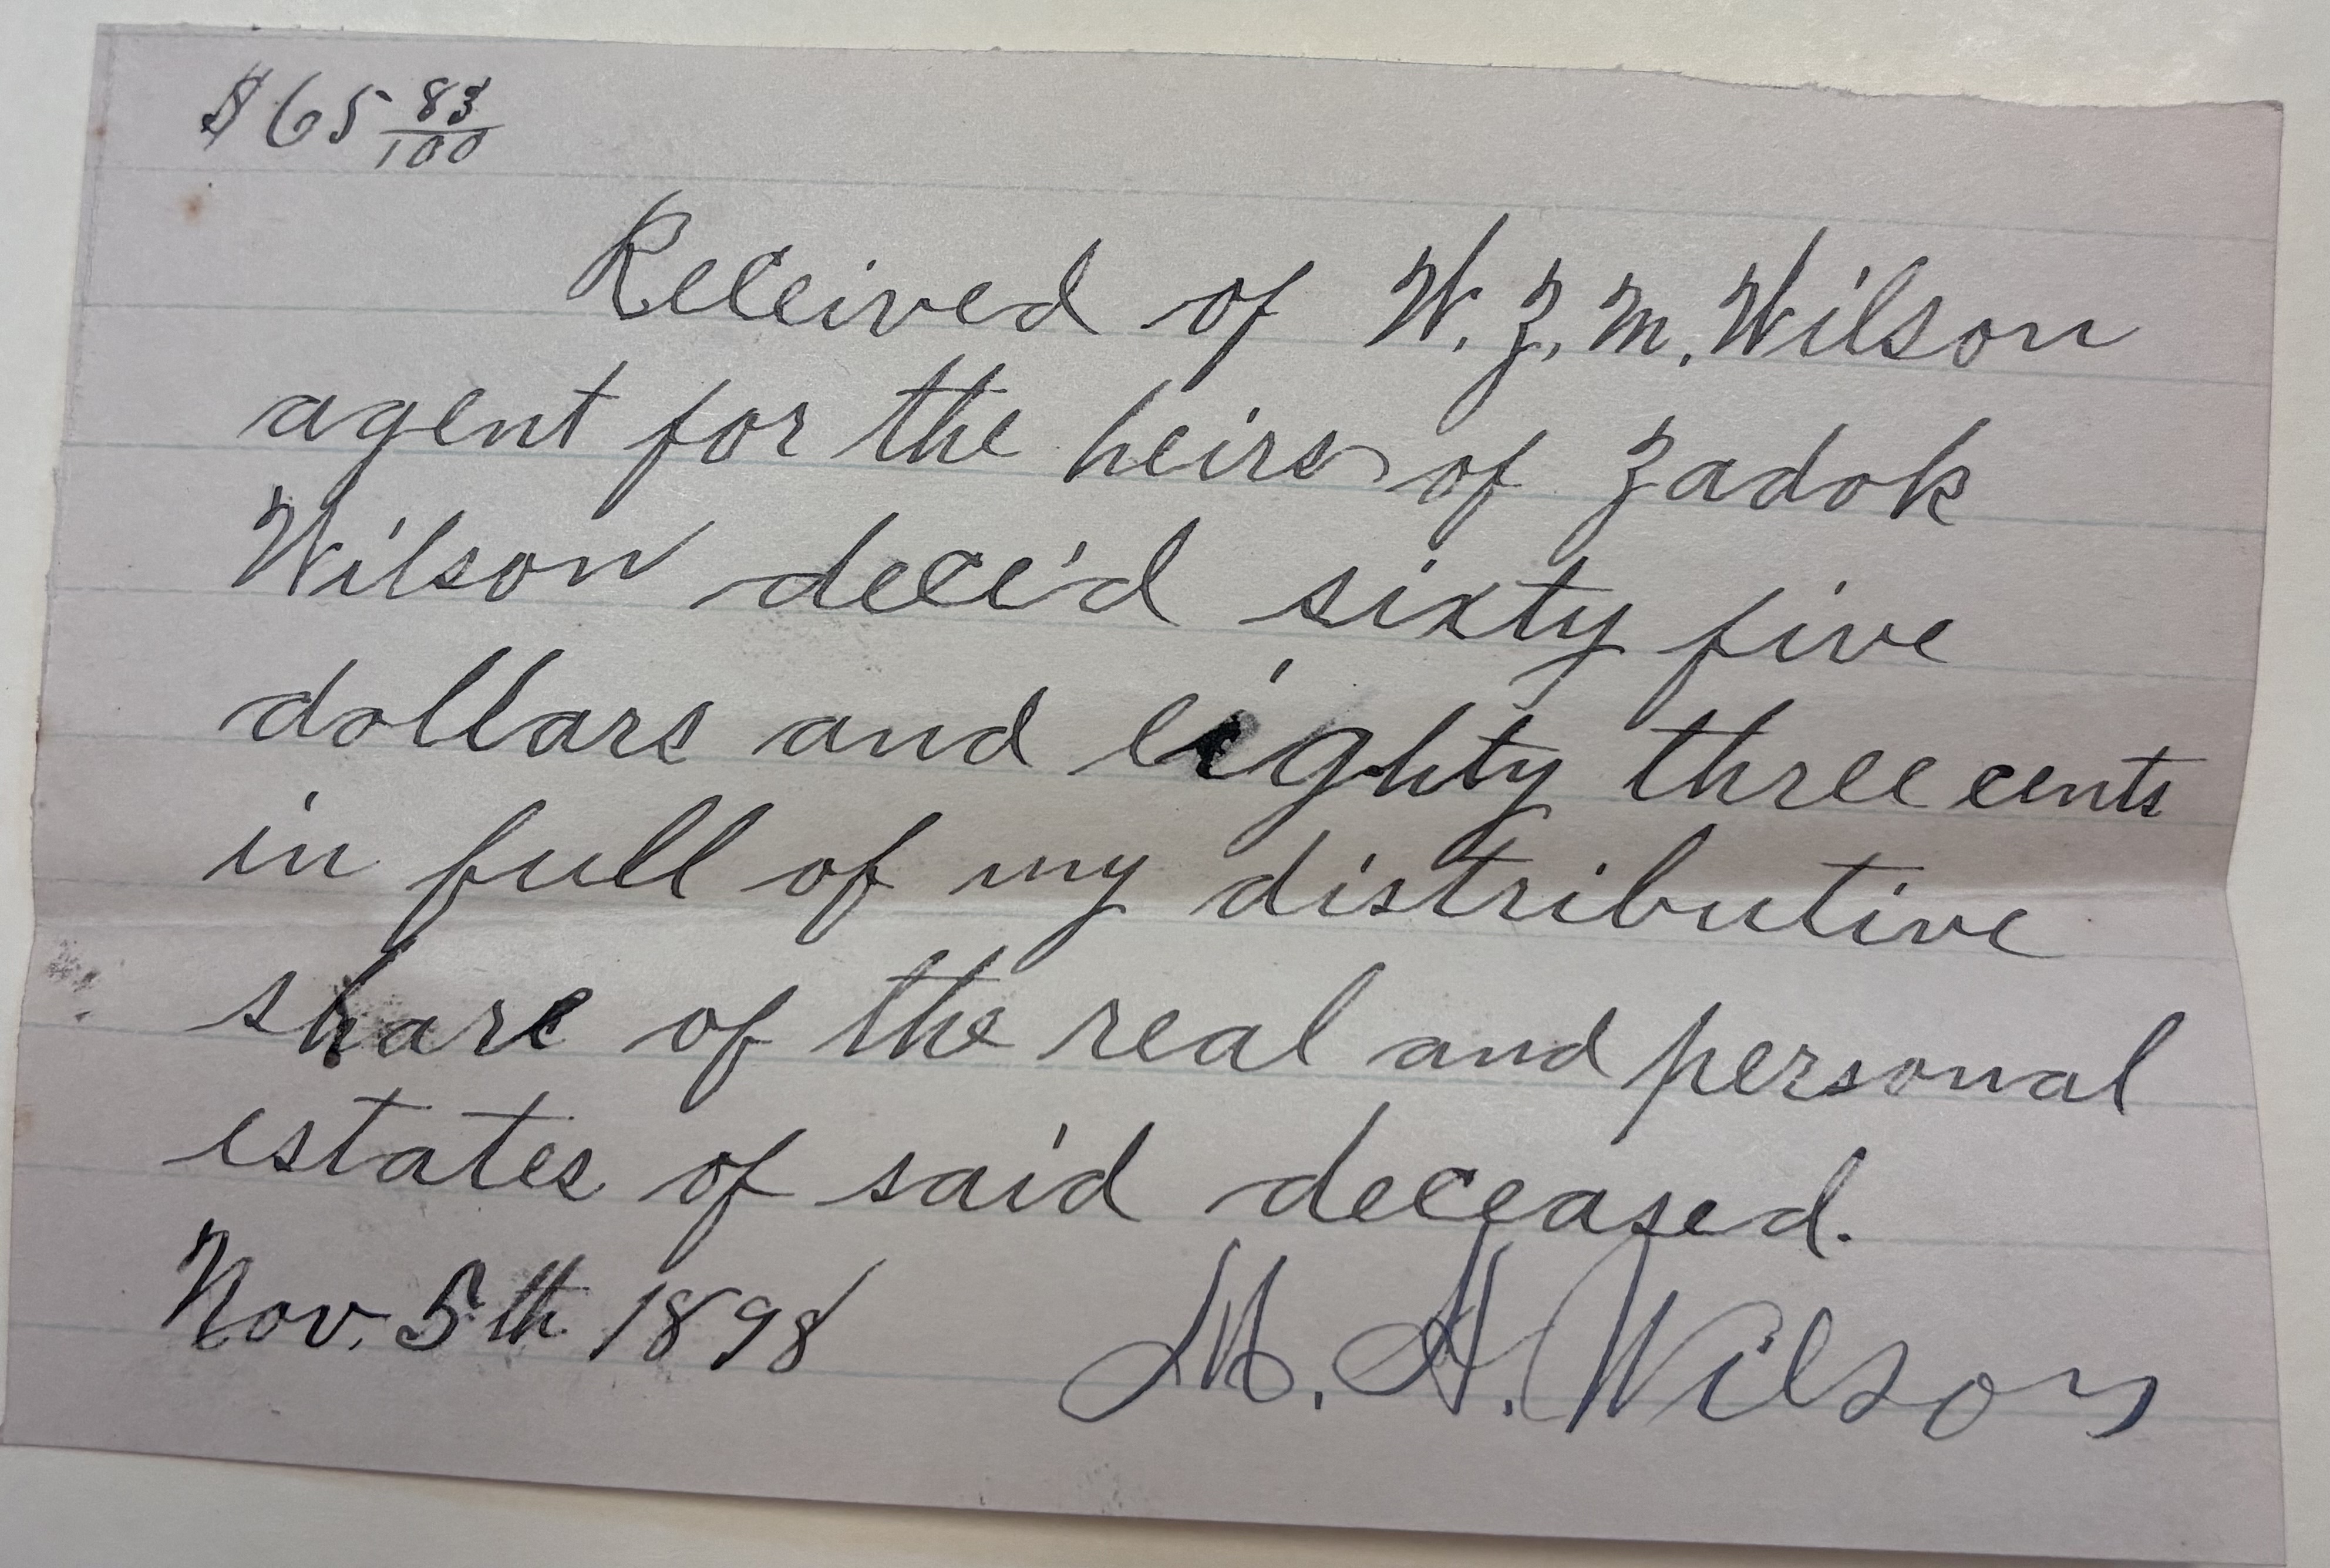 $65 83/100
Received of W. Z. M. Wilson
agent for the heirs of Zadok
Wilson dece'd sixty five
dollars and eighty three cents
in full of my distributive
share of the real and personal
estates of said deceased.
Nov. 5th 1898 M. A. Wilson